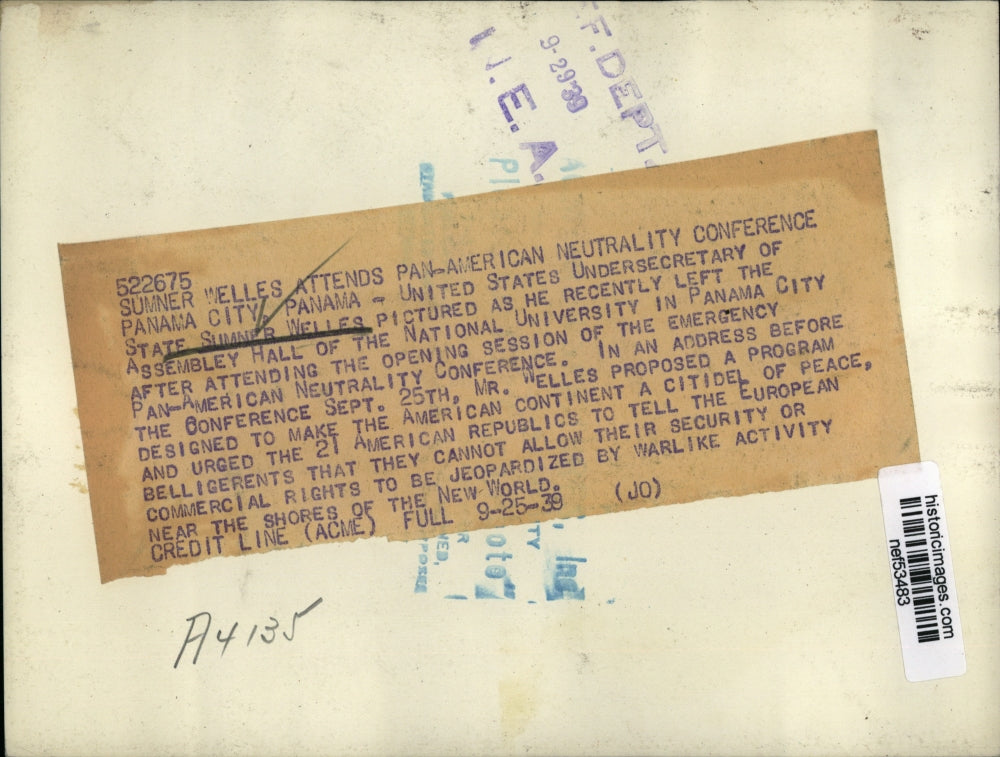 F. DEPT.
9-29-39
N.E.A.
PI
522675
SUMNER WELLES ATTENDS PAN-AMERICAN NEUTRALITY CONFERENCE
PANAMA CITY, PANAMA - UNITED STATES UNDERSECRETARY OF
STATE SUMNER WELLES PICTURED AS HE RECENTLY LEFT THE
ASSEMBLEY HALL OF THE NATIONAL UNIVERSITY IN PANAMA CITY
AFTER ATTENDING THE OPENING SESSION OF THE EMERGENCY
PAN-AMERICAN NEUTRALITY CONFERENCE. IN AN ADDRESS BEFORE
THE CONFERENCE SEPT. 25TH, MR. WELLES PROPOSED A PROGRAM
DESIGNED TO MAKE THE AMERICAN CONTINENT A CITIDEL OF PEACE,
AND URGED THE 21 AMERICAN REPUBLICS TO TELL THE EUROPEAN
BELLIGERENTS THAT THEY CANNOT ALLOW THEIR SECURITY OR
COMMERCIAL RIGHTS TO BE JEOPARDIZED BY WARLIKE ACTIVITY
NEAR THE SHORES OF THE NEW WORLD.
CREDIT LINE (ACME) FULL 9-25-39 (JO)
oto
TY
Inc
historicimages.com
nef53483
A4135